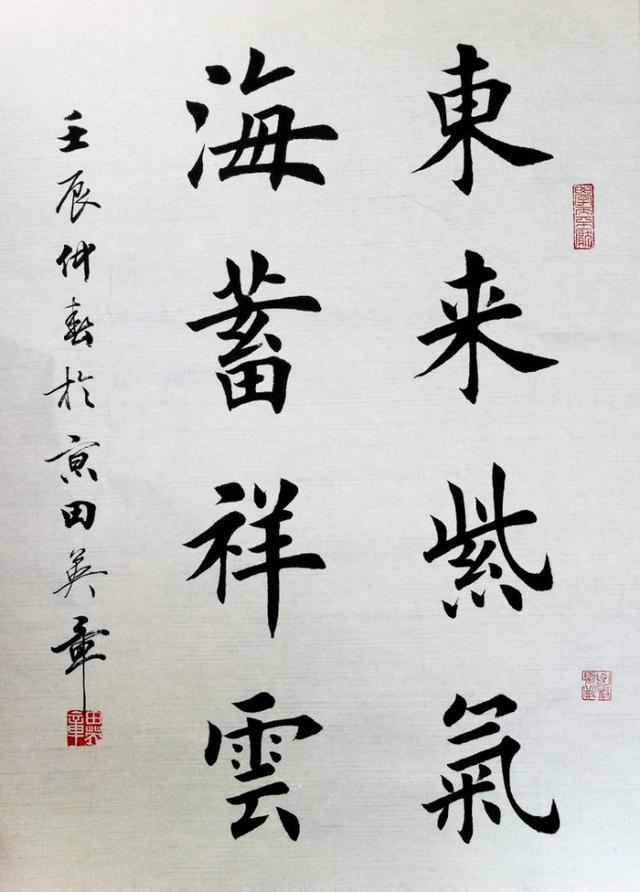 東来紫氣
海蓄祥雲
壬辰仲春於京田英章